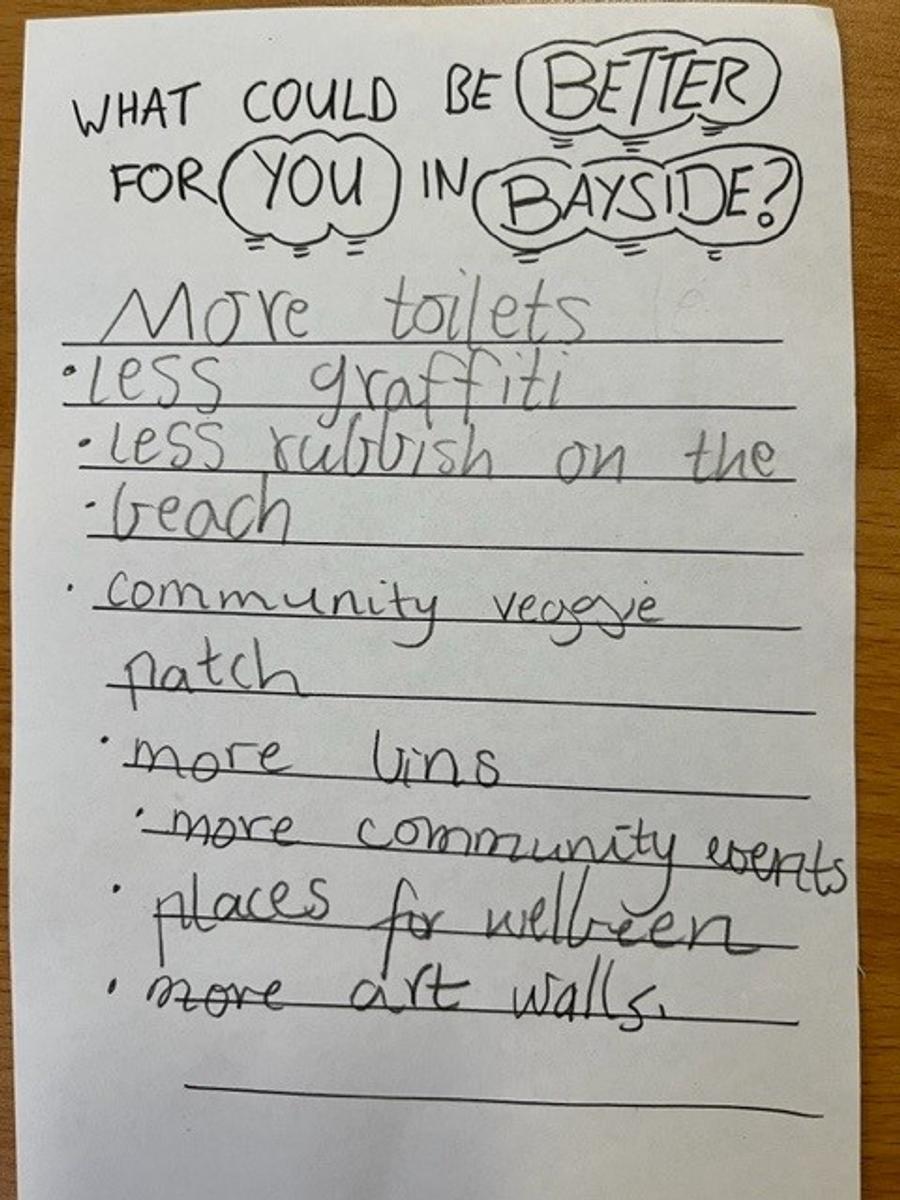 WHAT COULD BE BETTER
FOR YOU IN BAYSIDE?
More toilets
·less graffiti
·less rubbish on the
·beach
· community veggie
patch
· more bins
· more community events
· places for wellbeen
· more art walls.